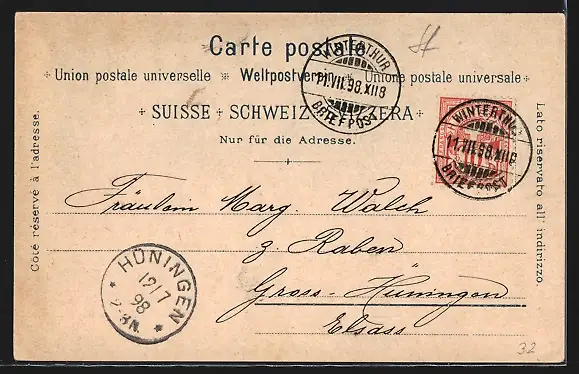 Carte postale.
Union postale universelle Weltpostverein Unione postale universale
SUISSE SCHWEIZ SVIZZERA
Nur für die Adresse.
Côté réservé à l'adresse.
Lato riservato all' indirizzo.
WINTERTHUR
11.VII.98.XII8
BRIEFPOST
WINTERTHUR
11.VII.98.XII8
BRIEFPOST
Fräulein Marg. Walch
z. Raben
Gross-Hüningen
Elsass
HÜNINGEN
12/7
98
2-3N.
32